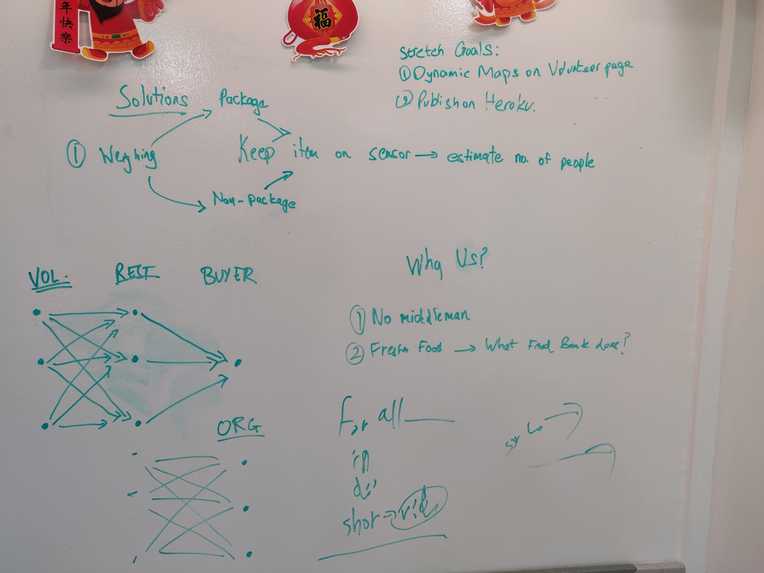 年快樂
福
Stretch Goals:
① Dynamic Maps on Volunteer page
② Publish on Heroku.
Solutions
Package
① Weighing
Keep item on sensor → estimate no. of people
Non-package
VOL.
REST
BUYER
Why Us?
① No middleman
② Fresh Food → What Food Bank does?
For all
ORG